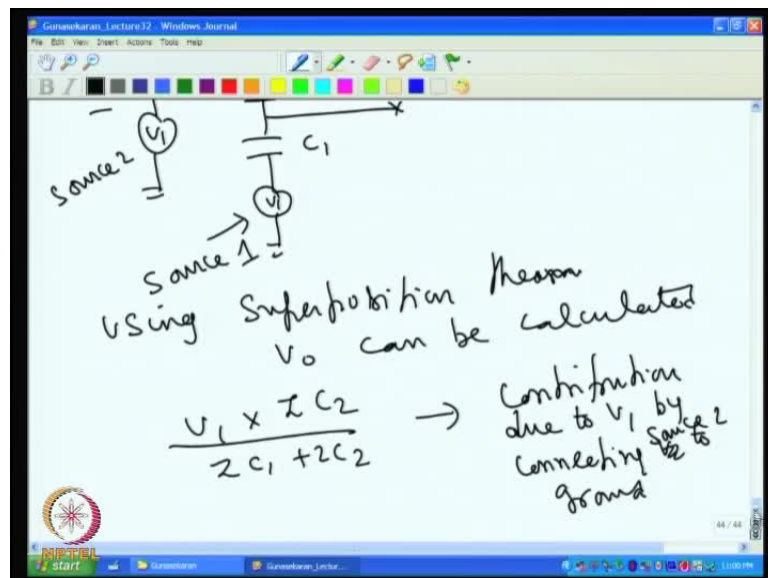 Gunasekaran_Lecture32 - Windows Journal
File Edit View Insert Actions Tools Help
B I
V1
Source 2
C1
V1
Source 1
Using Superposition Theorem
V0 can be calculated
V1 x ZC2
ZC1 + ZC2
→ Contribution
due to V1 by
connecting Source 2
to
ground
44 / 44
NPTEL
start
Gunasekaran
Gunasekaran_Lectur...
11:00 PM